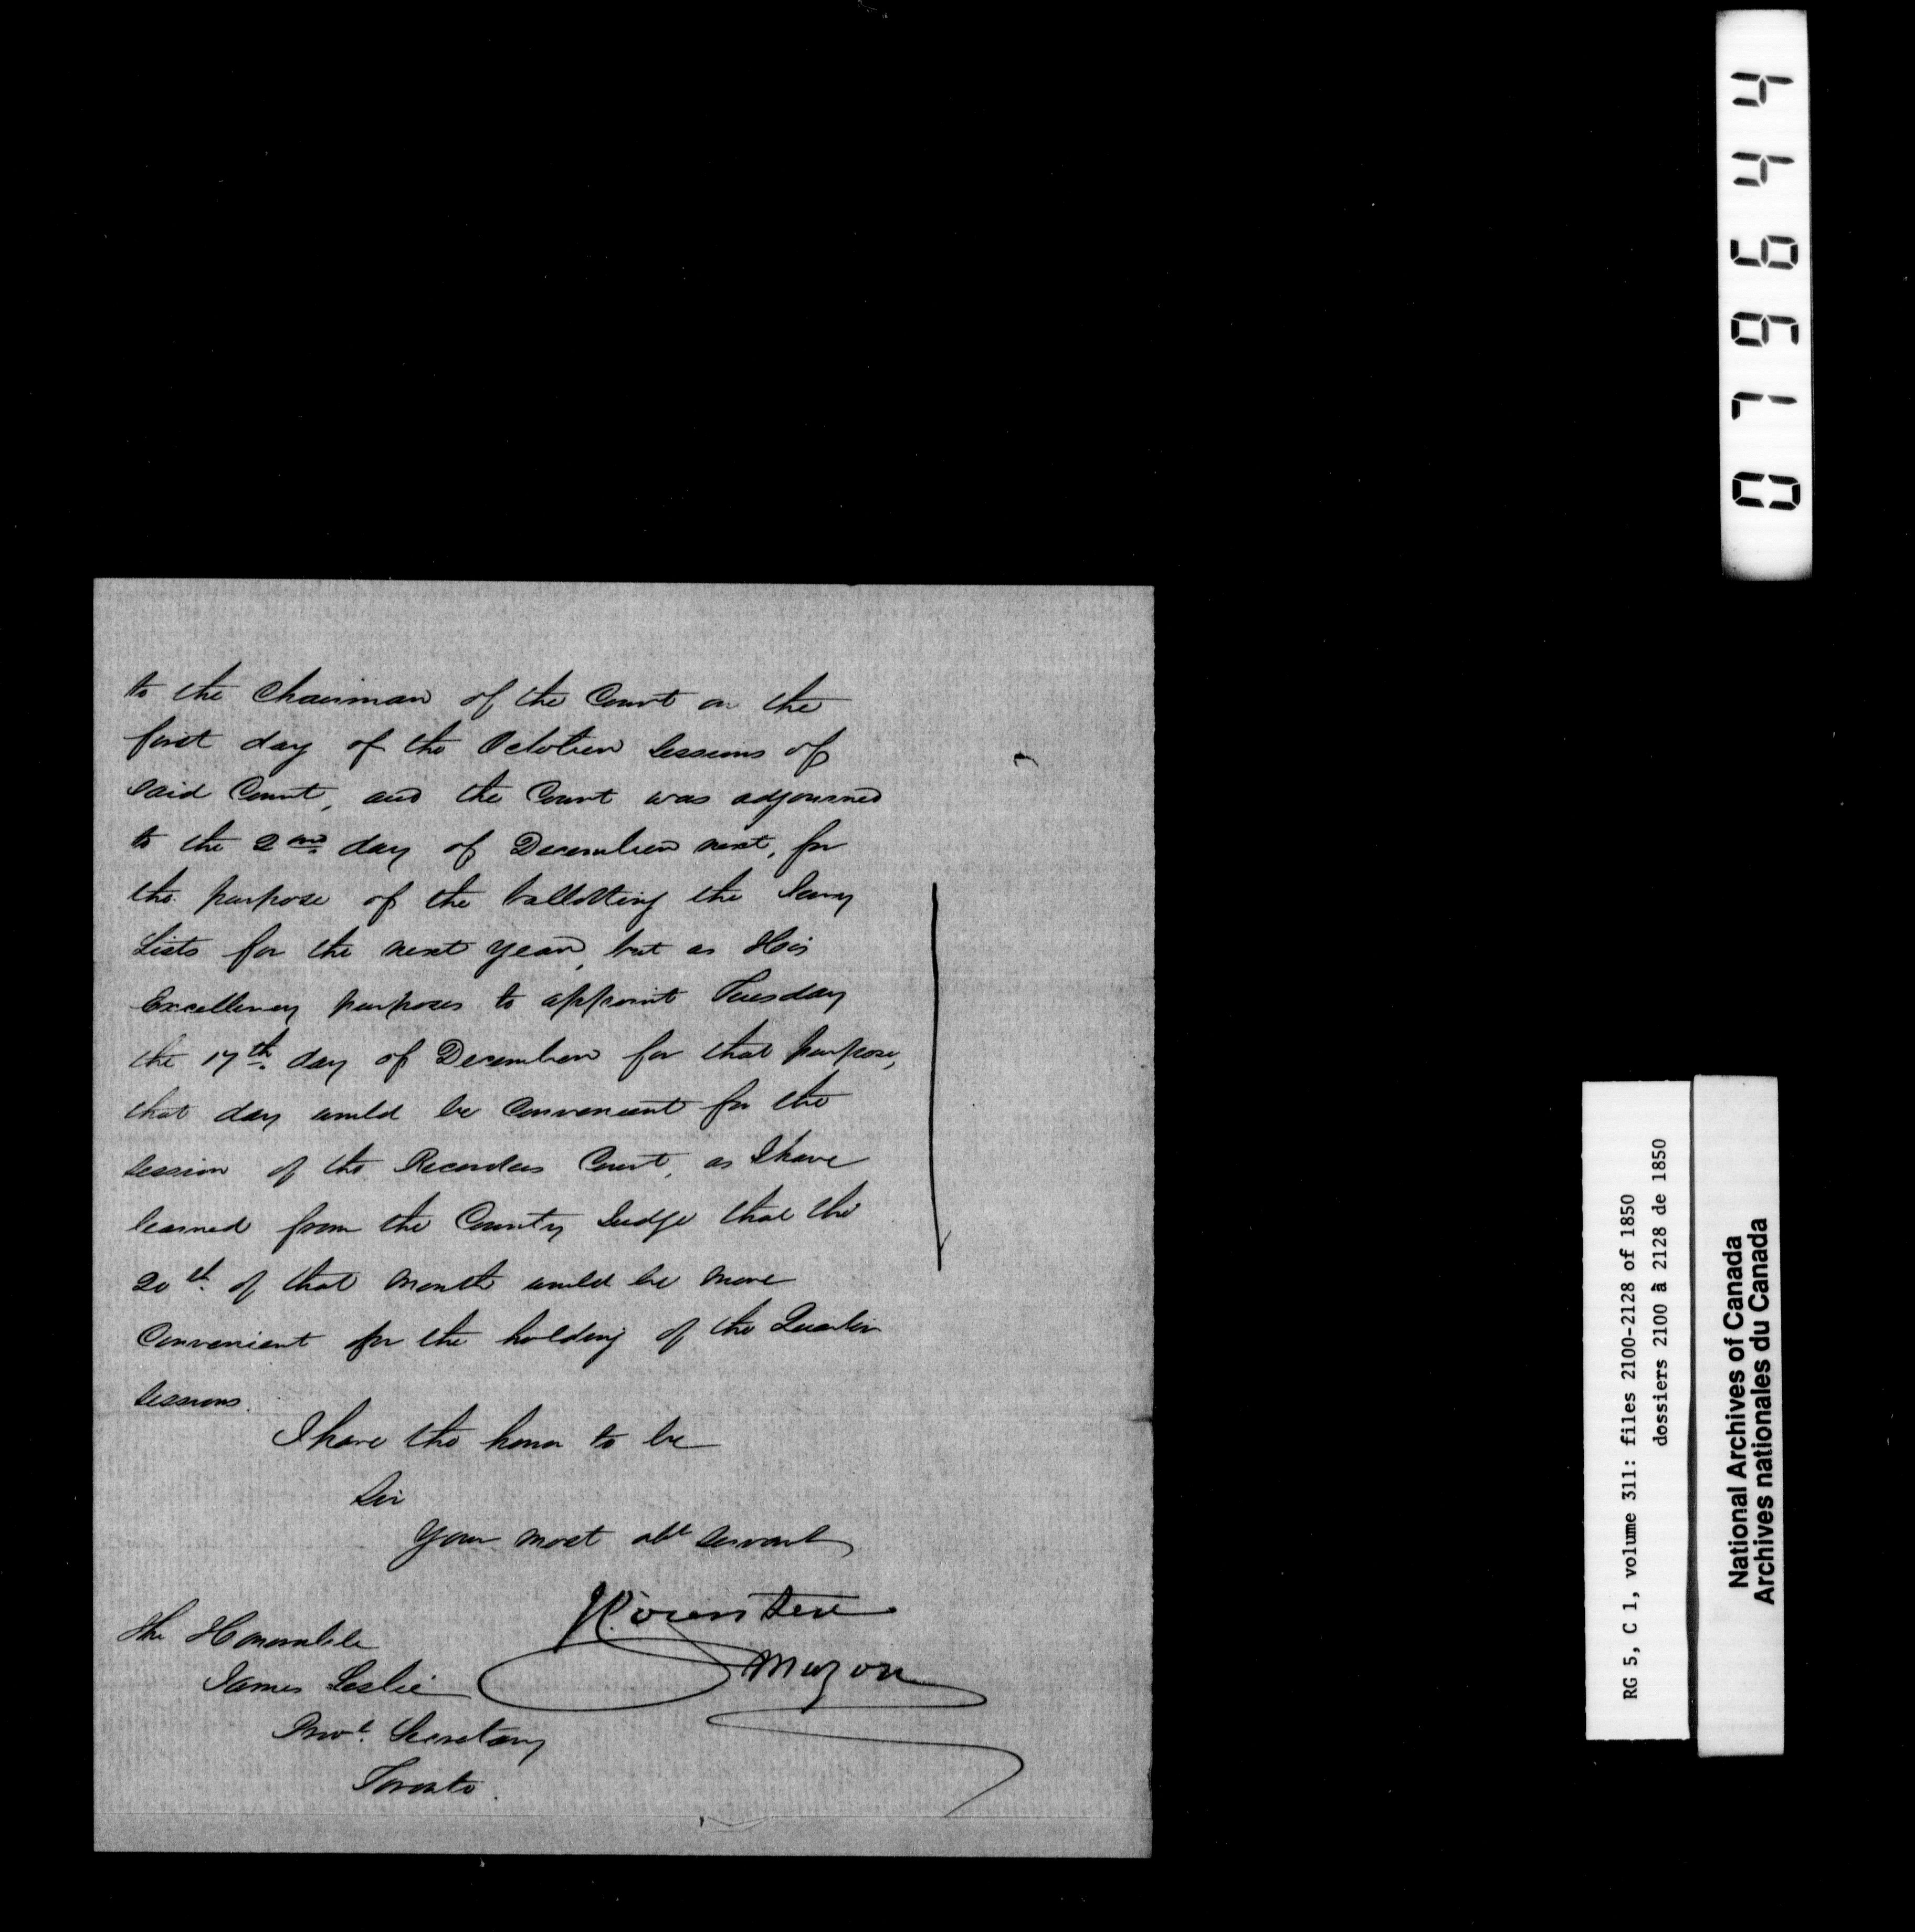 to the Chairman of the Court on the
first day of the October Sessions of
said Court, and the Court was adjourned
to the 2nd day of December next, for
the purpose of the ballotting the Jury
Lists for the next year, but as His
Excellency purposes to appoint Tuesday
the 17th day of December for that purpose,
that day would be convenient for the
session of the Recorders Court, as I have
learned from the County Judge that the
20th of that month would be more
Convenient for the holding of the Quarter
Sessions.
I have the honor to be
Sir
Your most obt servant
Mayor
The Honorable
James Leslie
Provl Secretary
Toronto.
079644
RG 5, C 1, volume 311: files 2100-2128 of 1850
dossiers 2100 à 2128 de 1850
National Archives of Canada
Archives nationales du Canada